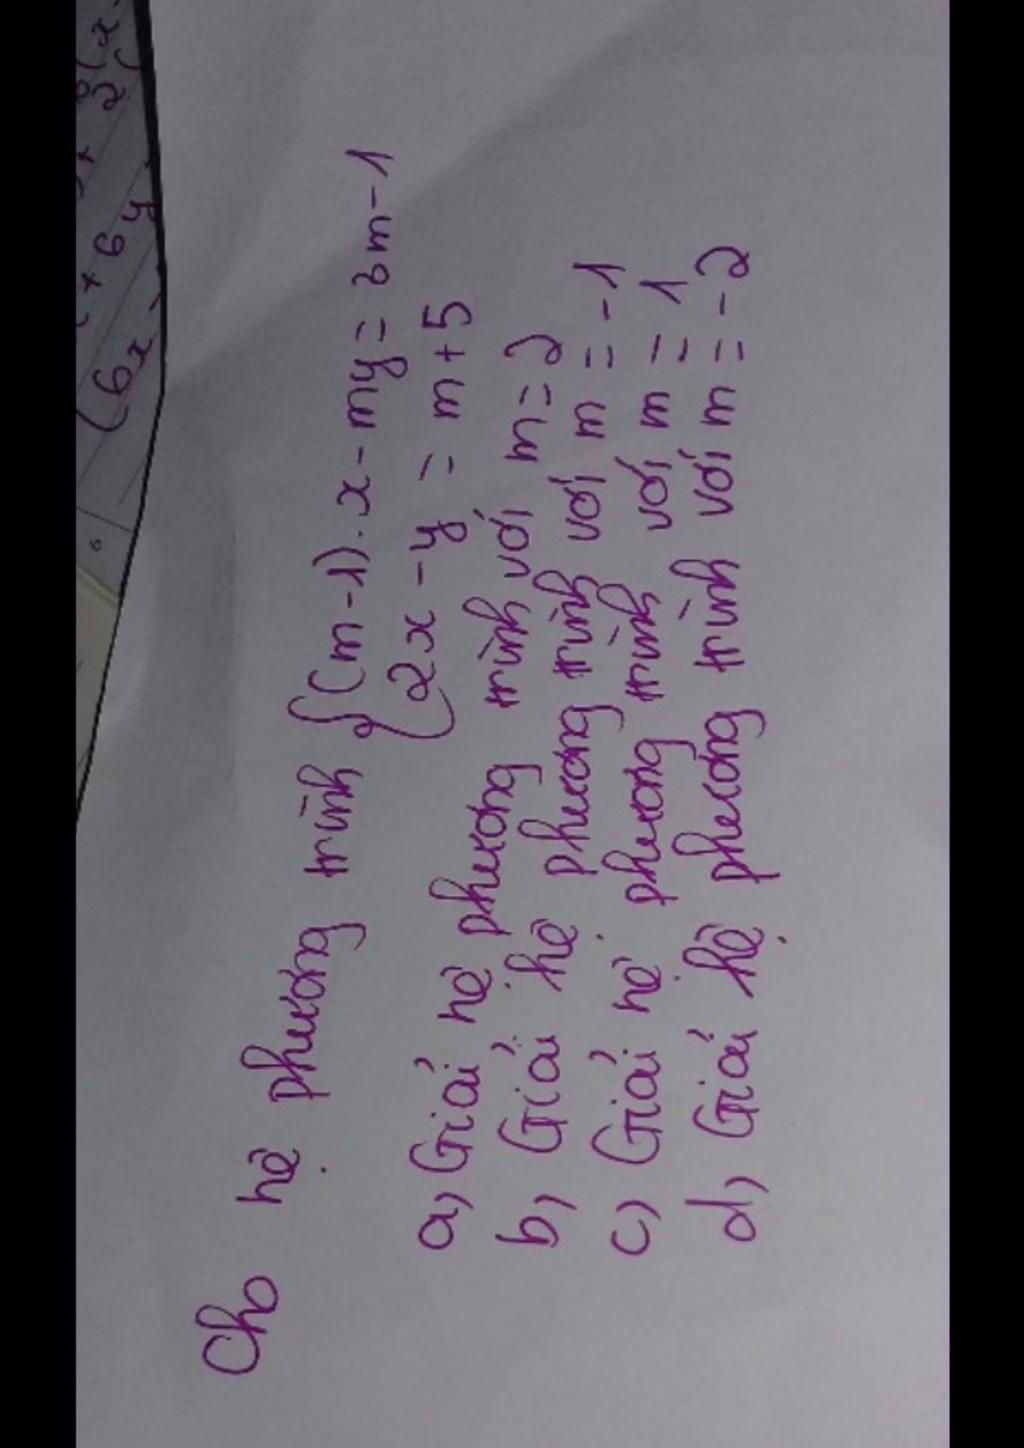 Cho hệ phương trình { (m-1).x - my = 3m-1
2x - y = m+5
a, Giải hệ phương trình với m=2
b, Giải hệ phương trình với m = -1
c, Giải hệ phương trình với m = 1
d, Giải hệ phương trình với m = -2
(6x
+6y
2(x